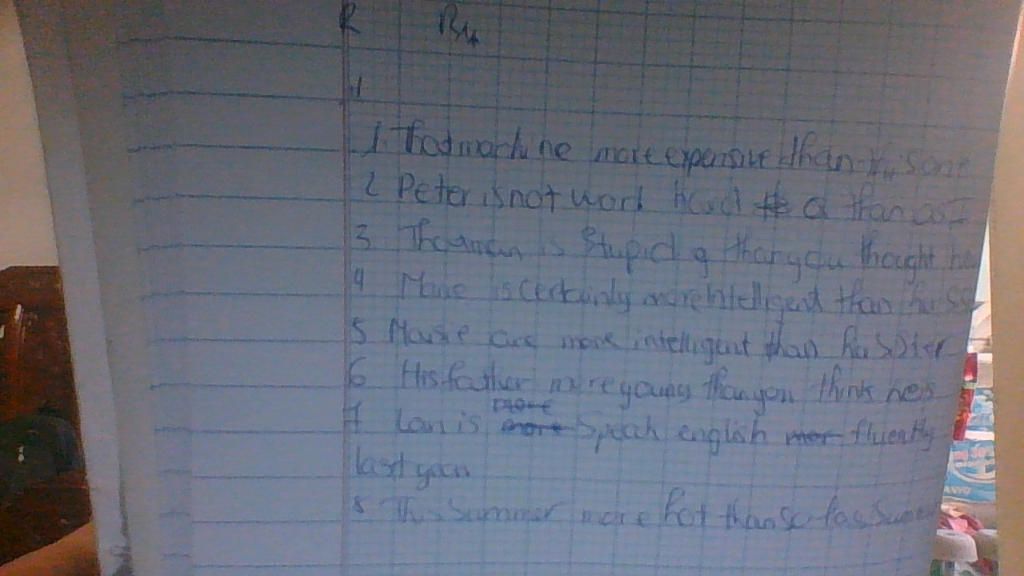 R
1
1. That machine more expensive than this one
2 Peter is not work hard a than as I
3 That man is Stupid than you thought he
4 Marie is certainly more intelligent than
5 Marie are more intelligent than
6 His father more young than you think he is
7 Loan is more Speak english fluently
last year
8 This Summer more hot than